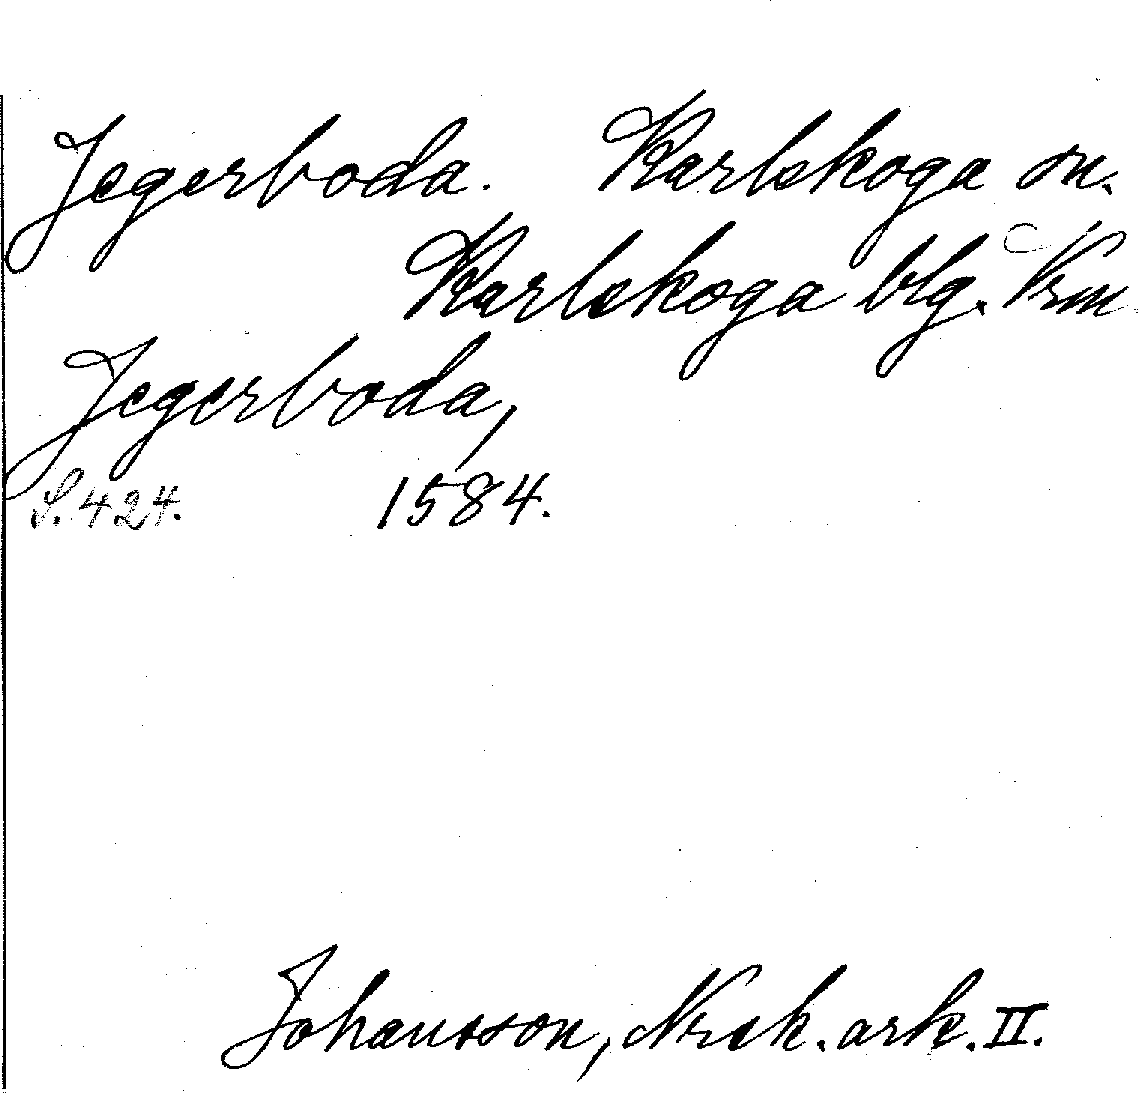 Jegerboda. Karlskoga sn.
Karlskoga blg. Krm
Jegerboda,
S. 424. 1584.
Johansson, Norsk. ark. II.